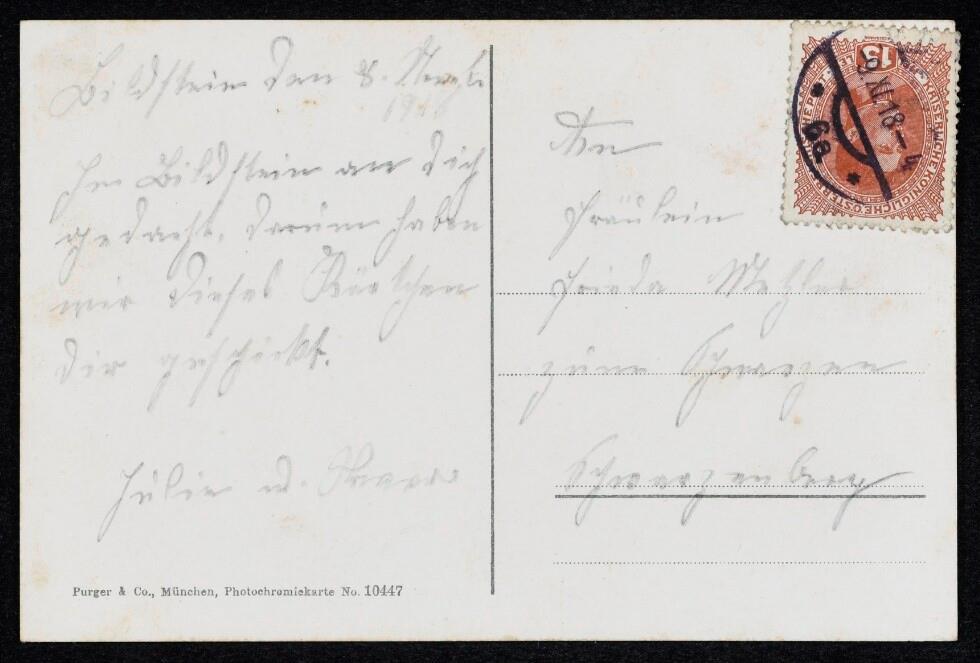 Bildstein den 8. Novbr.
1918
In Bildstein an Dich
gedacht, darum haben
wir dieses Kärtchen
Dir geschickt.
Julie u.
Purger & Co., München, Photochromiekarte No. 10447
An
Fräulein
Frieda Metzler
zum
Schwarzenberg
15
9.XI.18
6a
KAISERLICHE KÖNIGLICHE ÖSTERREICHISCHE POST